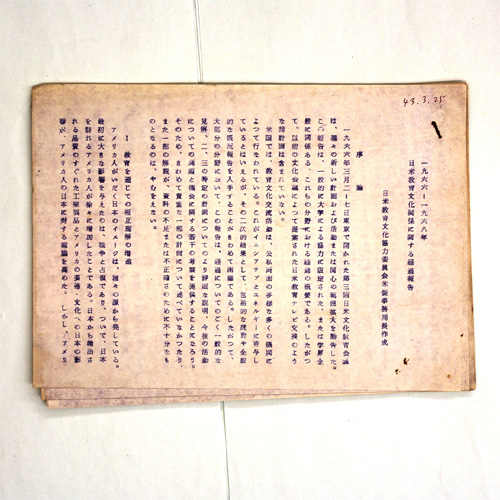 43.3.25
一九六六―一九六八年
日米教育文化関係に関する経過報告
日米教育文化協力委員会米側事務局長作成
序論
一九六六年三月二―七日東京で開かれた第三回日米文化教育会議
は、種々の新しい計画および活動または関心の範囲拡大を勧告した。
この報告は、一般的に大学による協力に限定された、または学界全
般に関係ある、これらの分野における経過の概要である。したがつ
て、以前の文化会議によつて提案された日米教育テレビ交換のよう
な諸計画は含まれていない。
米国では、教育文化交流活動は、公私両面の多様な多くの機関に
よつて行なわれている。これがイニシアチブとエネルギーに寄与し
ているとはいえるが、その二次的結果として、包括的な統計や全般
的な現況報告を入手することがきわめて困難である。したがつて、
大部分の分野において、この報告は、経過についてのごく一般的な
見解、二、三の特定の計画についてのより詳細な説明、今後の活動
についての問題と機会に関する若干の考察を提供することになろう。
そのため、きわめて貴重な一部の計画について述べていなかつたり
また一部の解釈が、資料の不足または不正確さのために不十分なも
のとなるのは、やむをえない。
I 教育を通じての相互理解の増進
アメリカ人がいだく日本のイメージは、種々の源から発している。
最初に大きな影響を与えたのは、戦争と占領であり、ついで、日本
を訪れるアメリカ人が徐々に増加したことである。日本から輸出さ
れる品質のすぐれた工業製品とアメリカの芸術・文化への日本の影
響が、アメリカ人の日本に対する認識を高めた。しかし、アメリ